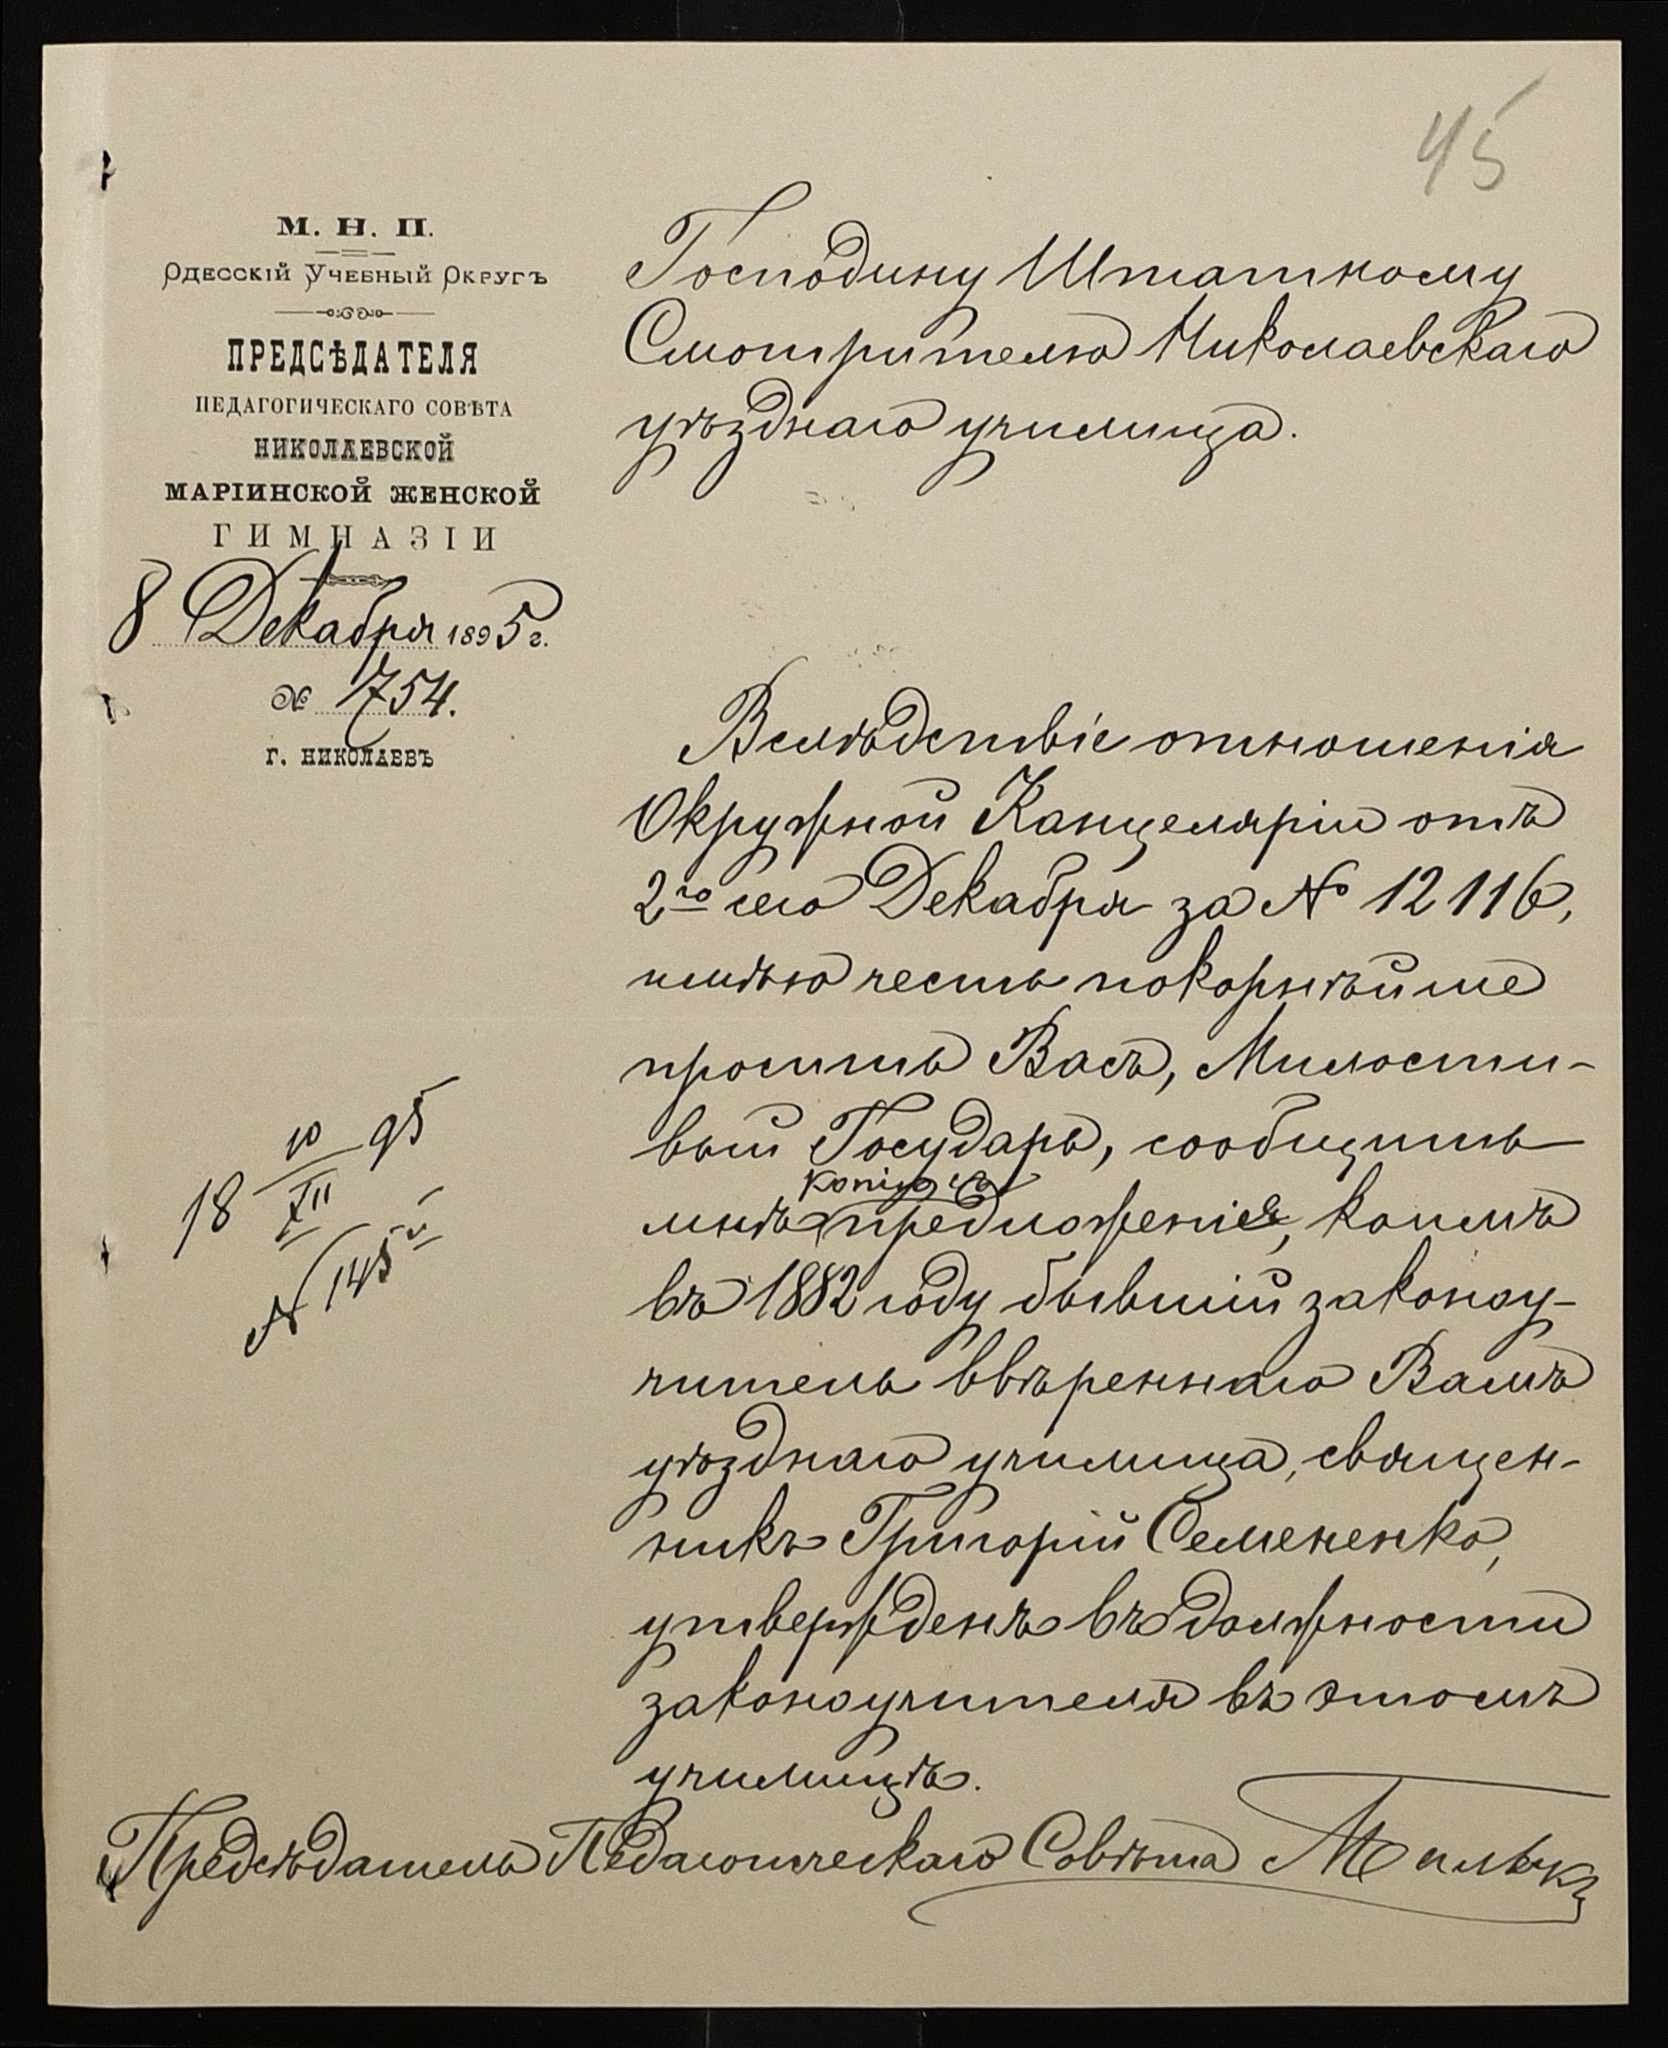 45
М. Н. П.
Одесскій Учебный Округъ
ПРЕДСѢДАТЕЛЯ
ПЕДАГОГИЧЕСКАГО СОВѢТА
НИКОЛАЕВСКОЙ
МАРІИНСКОЙ ЖЕНСКОЙ
ГИМНАЗІИ
8 Декабря 1895 г.
№ 1754.
Г. НИКОЛАЕВЪ
18 10/XII 95
№ 145
Господину Штатному
Смотрителю Николаевскаго
уѣзднаго училища.
Вслѣдствіе отношенія
Окружной Канцеляріи отъ
2го сего Декабря за № 12116,
имѣю честь покорнѣйше
просить Васъ, Милости-
вый Государь, сообщить
копію съ
мнѣ предложенія, коимъ
въ 1882 году бывшій законоу-
читель ввѣреннаго Вамъ
уѣзднаго училища, священ-
никъ Григорій Семененко,
утвержденъ въ должности
законоучителя въ этомъ
училищѣ.
Предсѣдатель Педагогическаго Совѣта